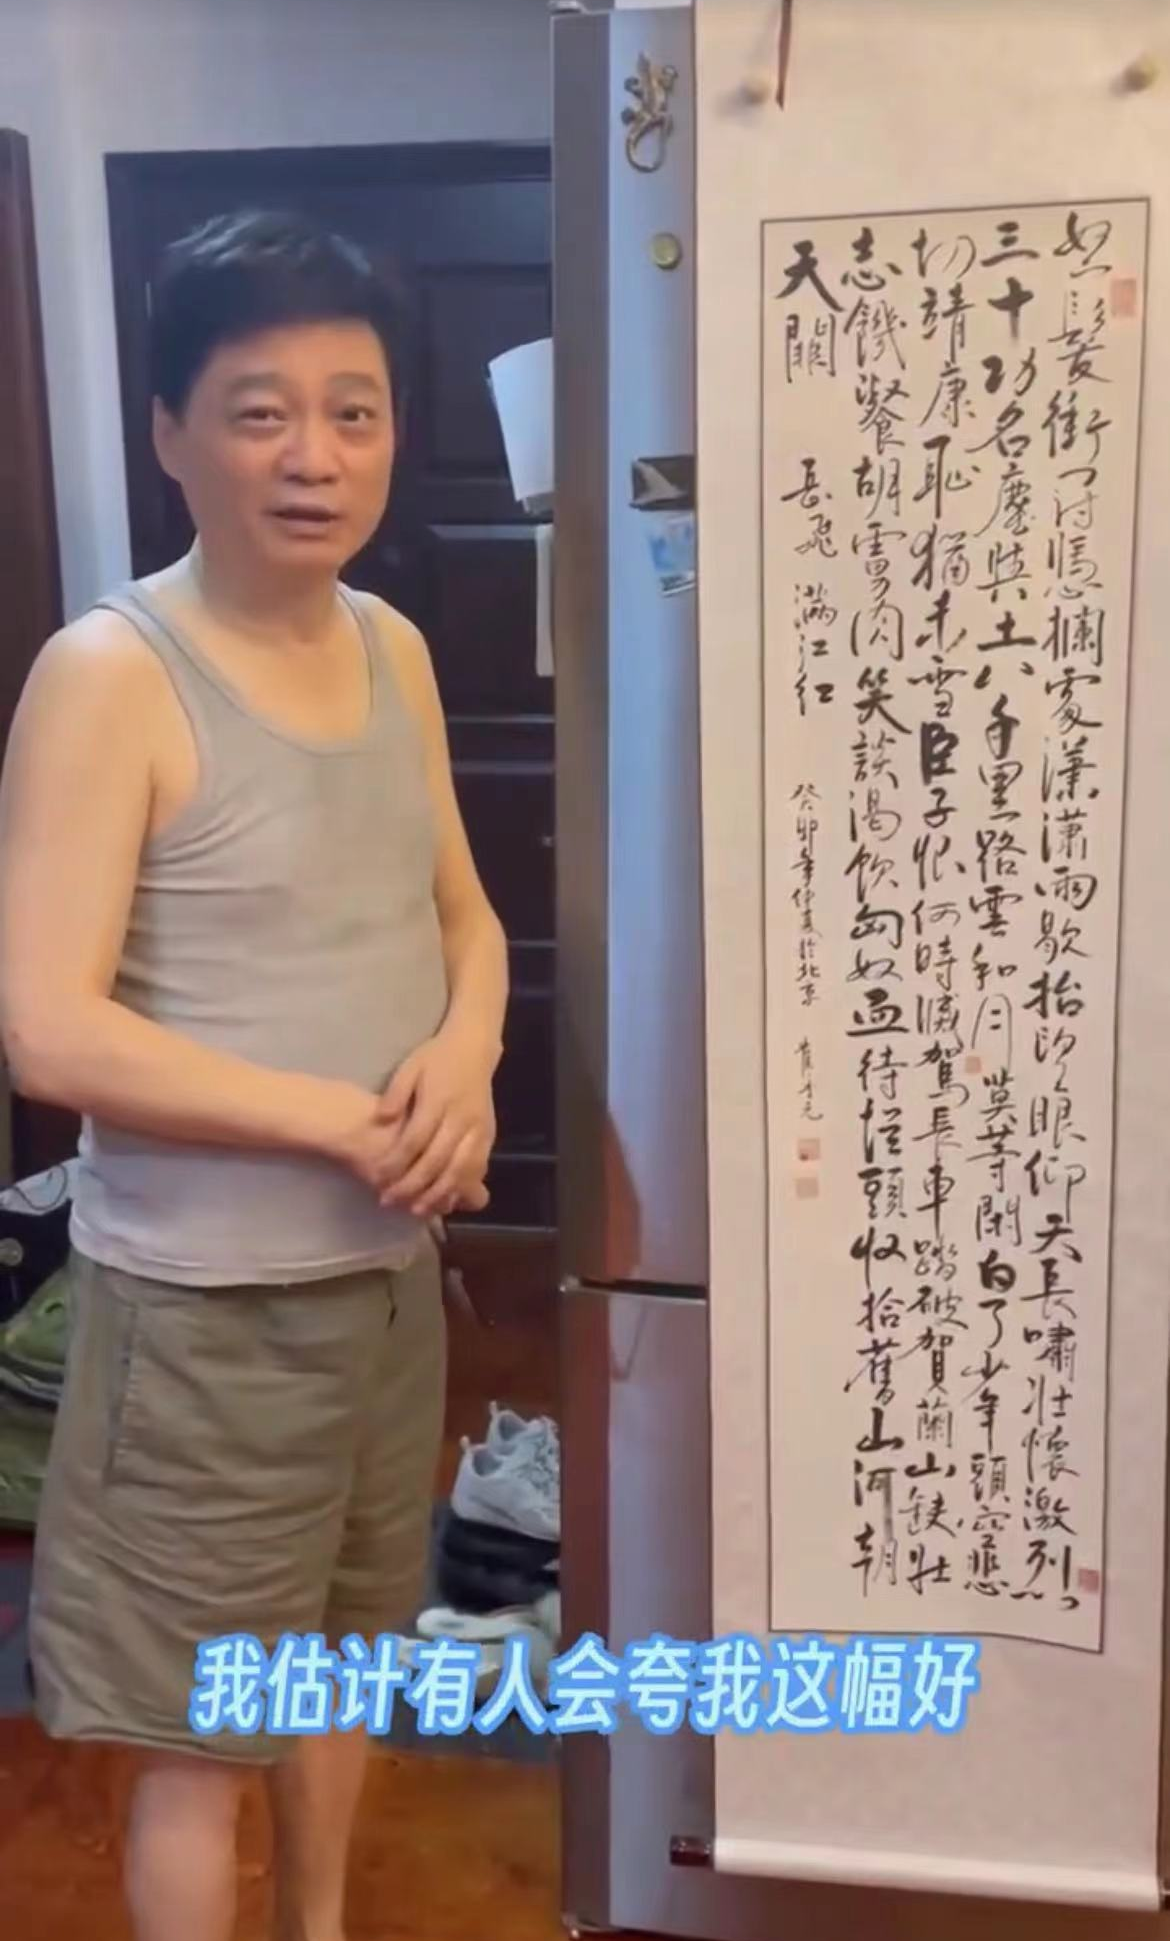 怒髮衝冠憑攔處瀟瀟雨歇抬望眼仰天長嘯壯懷激烈
三十功名塵與土八千里路雲和月莫等閑白了少年頭空悲
切靖康恥猶未雪臣子恨何時滅駕長車踏破賀蘭山缺壯
志饑餐胡虜肉笑談渴飲匈奴血待從頭收拾舊山河朝
天闕 岳飛 滿江紅 癸卯年仲夏於北京 崔永元
我估计有人会夸我这幅好